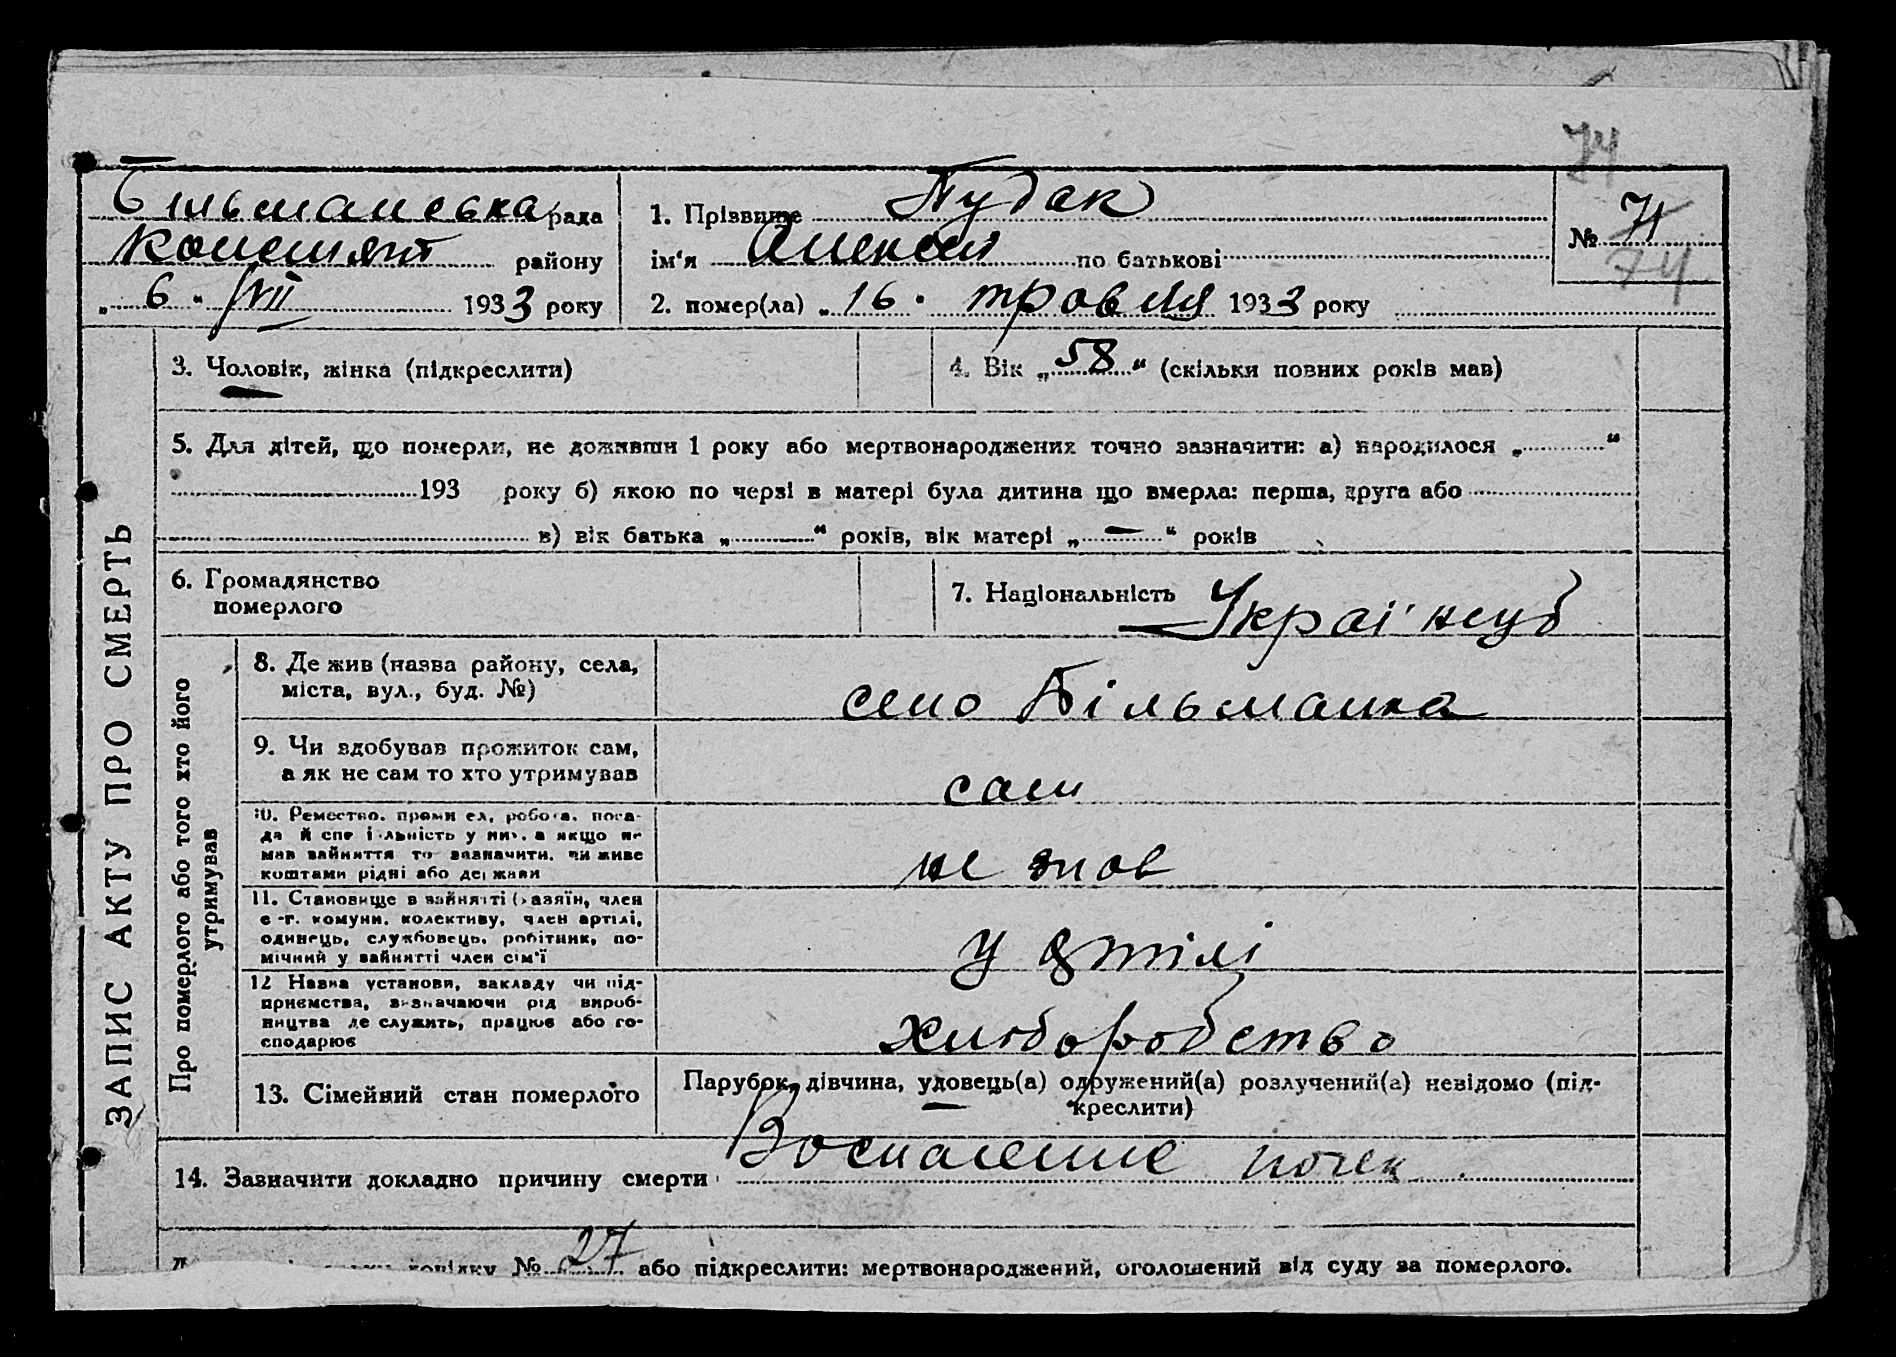 74
Більманська рада
1. Прізвище Пудак
№ 71
74
району
ім'я Алексей по батькові
„ 6 “ VII 1933 року
2. помер(ла) „ 16 “ травня 1933 року
ЗАПИС АКТУ ПРО СМЕРТЬ
3. Чоловік, жінка (підкреслити)
4. Вік „ 58 “ (скільки повних років мав)
5. Для дітей, що померли, не доживши 1 року або мертвонароджених точно зазначити: а) народилося „ “
193 року б) якою по черзі в матері була дитина що вмерла: перша, друга або
в) вік батька „ “ років, вік матері „ — “ років
6. Громадянство
померлого
7. Національність Українець
Про померлого або того хто його
утримував
8. Де жив (назва району, села,
міста, вул., буд. №)
село Більманка
9. Чи здобував прожиток сам,
а як не сам то хто утримував
сам
10. Ремество, промисел, робота, поса-
да й спеціяльність у них, а якщо не
мав зайняття то зазначити, чи живе
коштами рідні або держави
не знав
11. Становище в зайнятті (хазяїн, член
с-г. комуни, колективу, член артілі,
одинець, службовець, робітник, по-
мічний у зайнятті член сім'ї
у артілі
12 Назва установи, закладу чи під-
приємства, визначаючи рід вироб-
ництва де служить, працює або го-
сподарює
хліборобство
13. Сімейний стан померлого
Парубок, дівчина, удовець(а) одружений(а) розлучений(а) невідомо (під-
креслити)
14. Зазначити докладно причину смерти Воспаление почек
№ 27 або підкреслити: мертвонароджений, оголошений від суду за померлого.